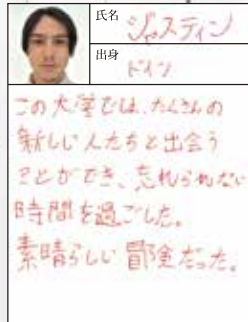 氏名 ジャスティン
出身 ドイツ
この大学では、たくさんの
新しい人たちと出会う
ことができ、忘れられない
時間を過ごした。
素晴らしい冒険だった。